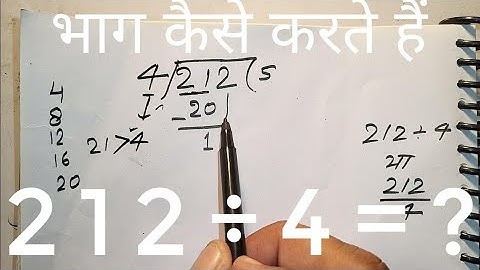 भाग कैसे करते हैं
4
8
12
16
20
21>4
4)212(5
-20
1
212÷4
या
212
4
212÷4=?